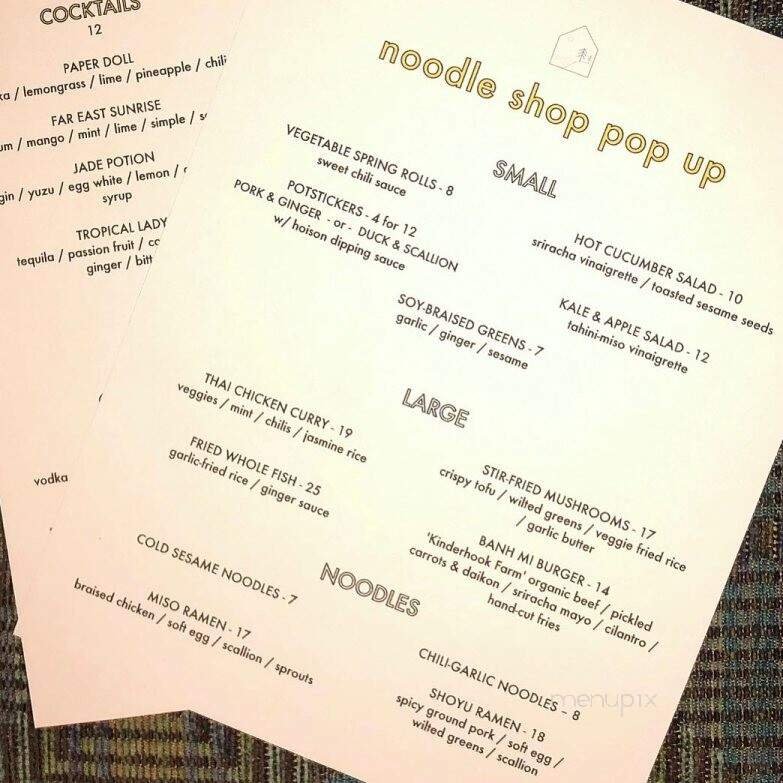 COCKTAILS
12
PAPER DOLL
/ lemongrass / lime / pineapple / chili
FAR EAST SUNRISE
/ mango / mint / lime / simple /
JADE POTION
gin / yuzu / egg white / lemon /
syrup
TROPICAL LADY
tequila / passion fruit /
ginger /
vodka
noodle shop pop up
SMALL
VEGETABLE SPRING ROLLS - 8
sweet chili sauce
POTSTICKERS - 4 for 12
PORK & GINGER - or - DUCK & SCALLION
w/ hoison dipping sauce
HOT CUCUMBER SALAD - 10
sriracha vinaigrette / toasted sesame seeds
SOY-BRAISED GREENS - 7
garlic / ginger / sesame
KALE & APPLE SALAD - 12
tahini-miso vinaigrette
LARGE
THAI CHICKEN CURRY - 19
veggies / mint / chilis / jasmine rice
FRIED WHOLE FISH - 25
garlic-fried rice / ginger sauce
STIR-FRIED MUSHROOMS - 17
crispy tofu / wilted greens / veggie fried rice
/ garlic butter
BANH MI BURGER - 14
'Kinderhook Farm' organic beef / pickled
carrots & daikon / sriracha mayo / cilantro /
hand-cut fries
NOODLES
COLD SESAME NOODLES - 7
MISO RAMEN - 17
braised chicken / soft egg / scallion / sprouts
CHILI-GARLIC NOODLES - 8
SHOYU RAMEN - 18
spicy ground pork / soft egg /
wilted greens / scallion
menupix